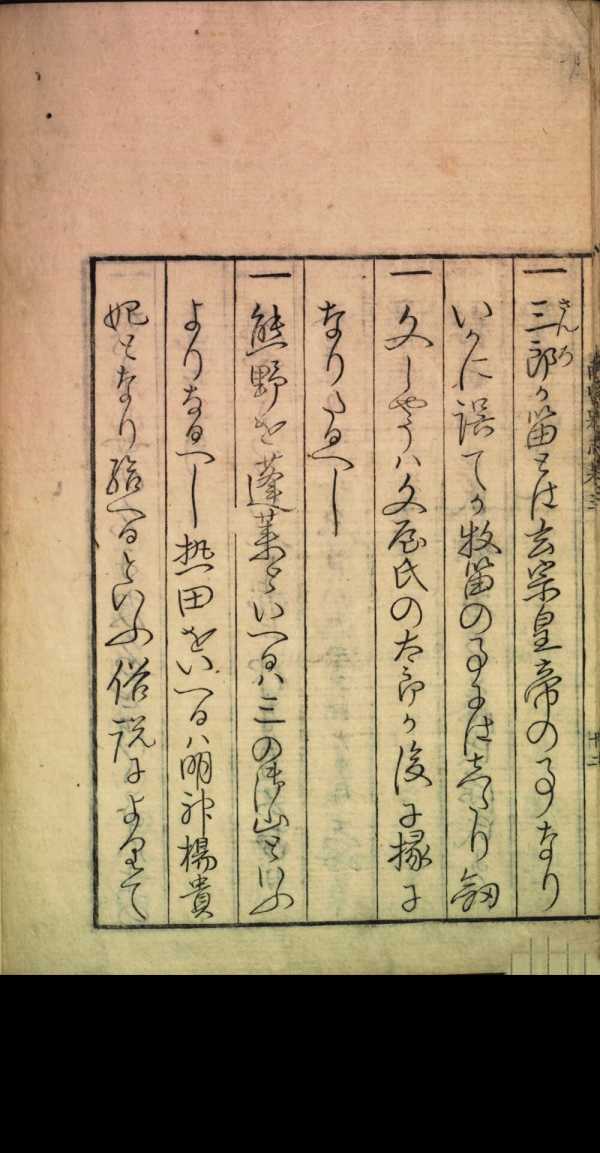 一 三郎か笛とは玄宗皇帝の事なり
さんろ
いかに誤てか牧笛の事にはしたり
一 文しやうハ文屋氏の太郎か後に縁に
なりたるへし
一 熊野を蓬莱といへるハ三の御山といふ
よりなるへし熱田をいへるハ明神楊貴
妃となり給へるといふ俗説によりて
十二